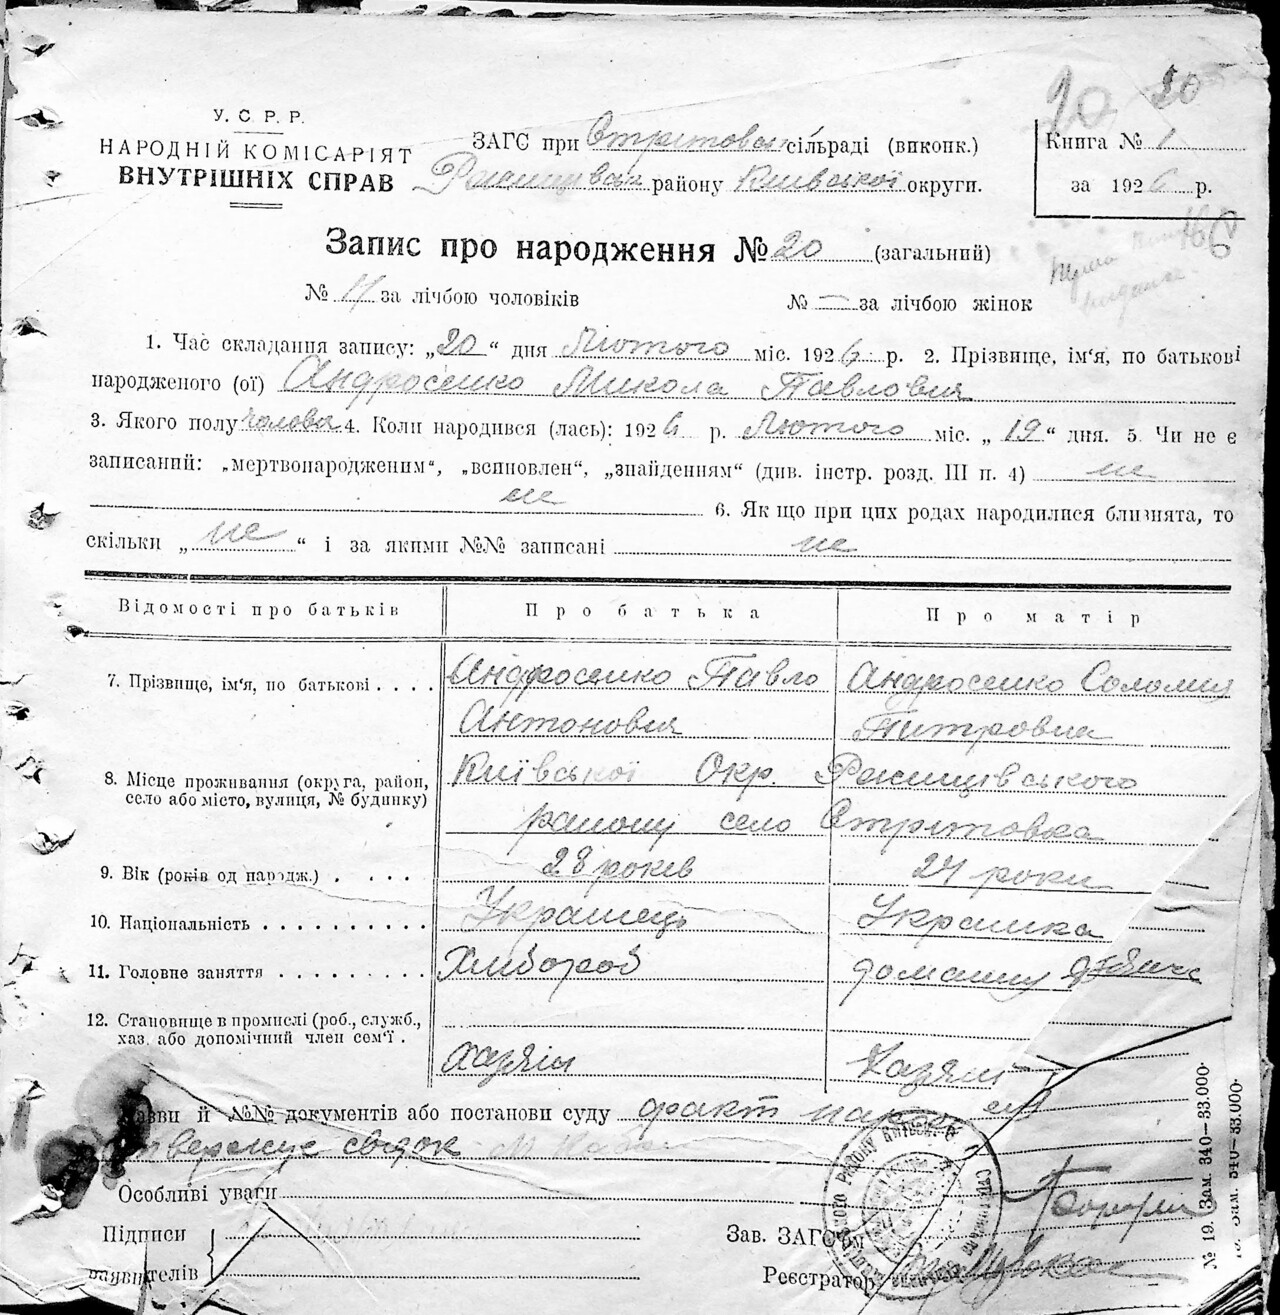 20 20
У. С. Р. Р.
НАРОДНІЙ КОМІСАРІЯТ
ВНУТРІШНІХ СПРАВ
ЗАГС при Стритовській сільраді (виконк.)
Ржищівськ району Київської округи.
Книга № 1
за 1926 р.
Запис про народження № 20 (загальний)
№ 11 за лічбою чоловіків № — за лічбою жінок
1. Час складання запису: „20“ дня Лютого міс. 1926 р. 2. Прізвище, ім'я, по батькові
народженого (ої) Андросенко Микола Павлович
3. Якого полу чолов 4. Коли народився (лась): 1926 р. Лютого міс. „19“ дня. 5. Чи не є
записаний: „мертвонародженим“, „всиновлен“, „знайденням“ (див. інстр. розд. III п. 4) не
не 6. Як що при цих родах народилися близнята, то
скільки „не“ і за якими №№ записані не
Відомості про батьків Про батька Про матір
7. Прізвище, ім'я, по батькові . . . . Андросенко Павло Андросенко Соломия
Антонович Питровна
8. Місце проживання (округа, район, село або місто, вулиця, № будинку) Київської Окр. Ржищівського
району село Стритовка
9. Вік (років од народж.) . . . . . 28 років 24 роки
10. Національність . . . . . . . . . . Українець Українка
11. Головне заняття . . . . . . . . . Хлибороб домашну
12. Становище в промислі (роб., служб.,
хаз. або допомічний член сем'ї . Хазяін Хазяін
Назви й №№ документів або постанови суду факт народ
свідок
Особливі уваги
Підписи
заявителів
Зав. ЗАГС'ом
Реєстратор
№ 19. Зам. 340—33.000-